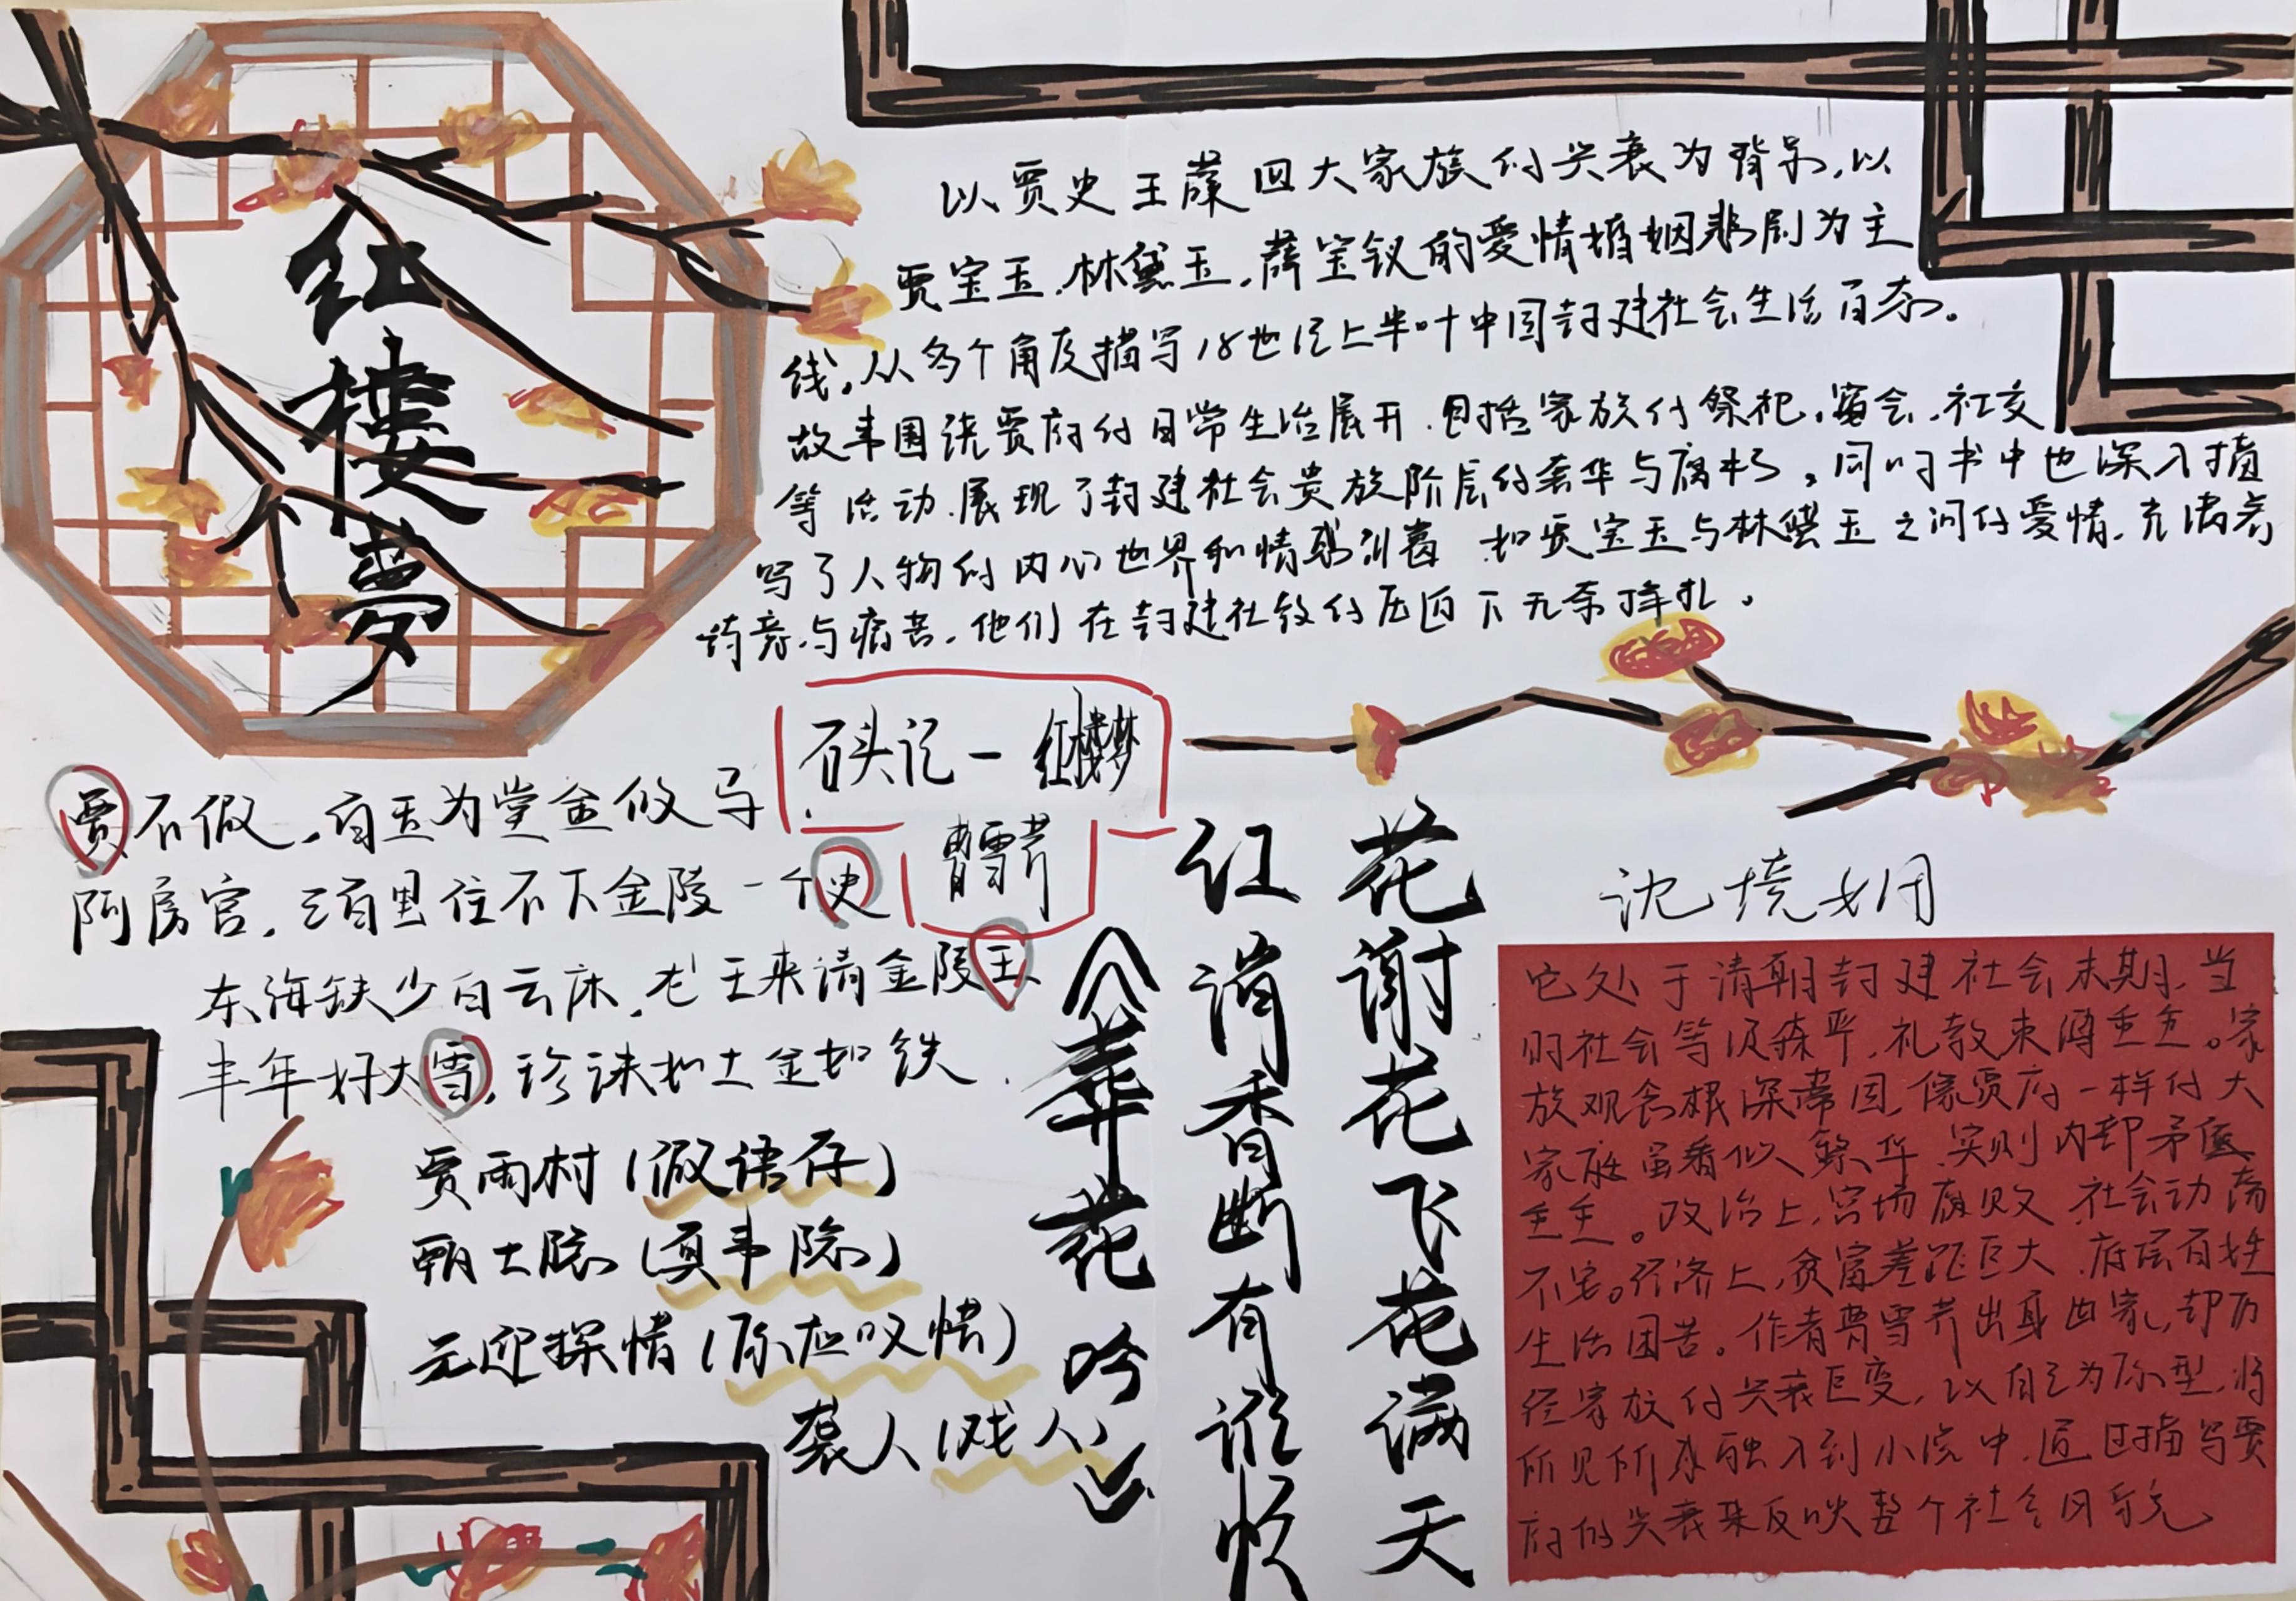 红楼梦
以贾史王薛四大家族的兴衰为背景,以
贾宝玉.林黛玉.薛宝钗的爱情婚姻悲剧为主
线。从多个角度描写18世纪上半叶中国封建社会生活百态。
故事围绕贾府的日常生活展开.包括家族的祭祀.宴会.社交
等活动.展现了封建社会贵族阶层的奢华与腐朽。同时书中也深入描
写了人物的内心世界和情感 如贾宝玉与林黛玉之间的爱情.充满着
诗意与痛苦.他们在封建社教的压迫下无奈挣扎。
石头记一红楼梦
曹雪芹
贾不假,白玉为堂金做马
阿房宫,三百里住不下金陵一个史
东海缺少白云床,老王来请金陵王
丰年好大雪,珍诛如土金如铁.
贾雨村(假语存)
甄士隐(真事隐)
元迎探惜(原应叹惜)
袭人(戏人)
花谢花飞花满天
红消香断有谁怜
《葬花吟》
它处于清朝封建社会末期.当
时社会等级森严.礼教束缚重重。家
族观念根深蒂固,像贾府一样的大
家庭虽看似繁华.实则内部矛盾
重重。政治上,官场腐败 社会动荡
不安。经济上,贫富差距巨大.底层百姓
生活困苦。作者曹雪芹出身世家,却历
经家族的兴衰巨变,以自己为原型,将
所见所感融入到小说中.通过描写贾
府的兴衰来反映整个社会的